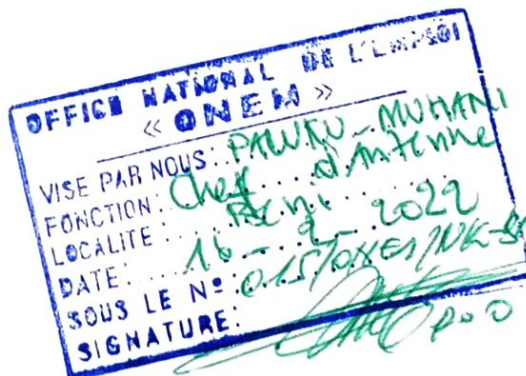 OFFICE NATIONAL DE L'EMPLOI
« ONEM »
VISE PAR NOUS: PALUKU-MUHANI
FONCTION: Chef d'Antenne
LOCALITE: Beni
DATE: 16-2-2022
SOUS LE Nº: 015/ONEM/NK-
SIGNATURE: